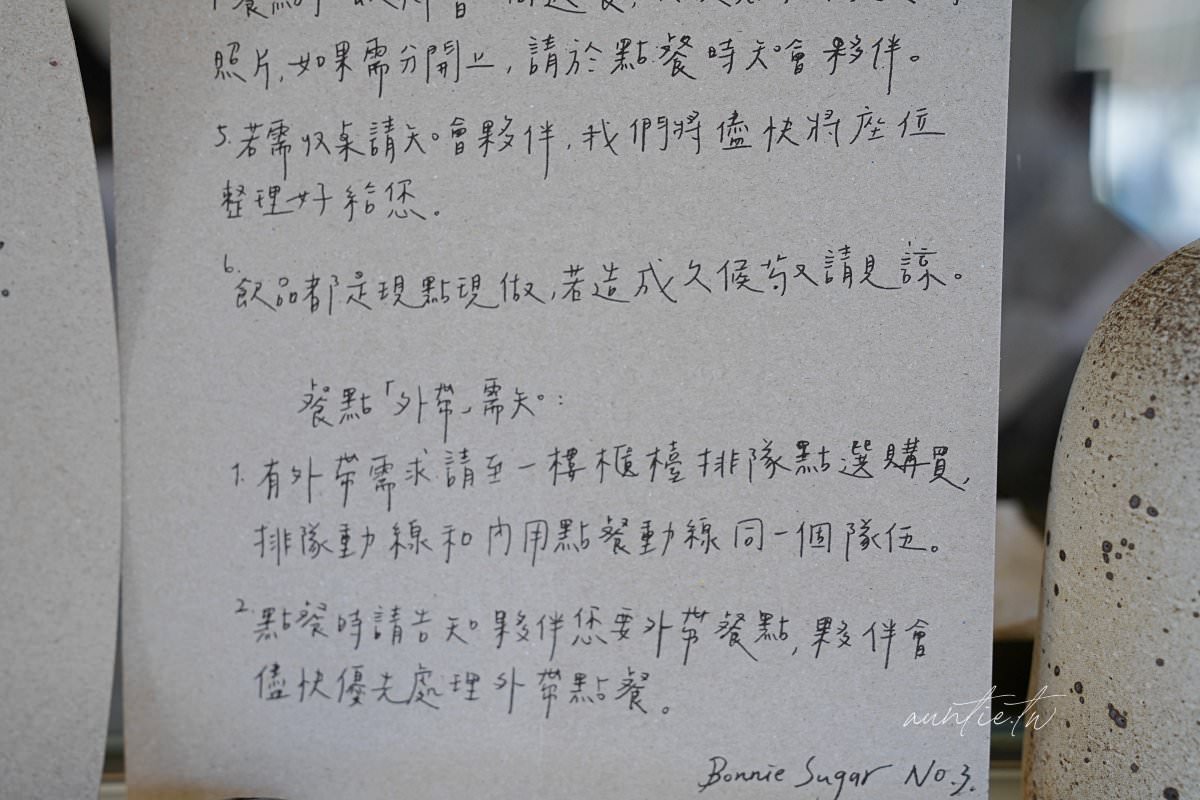 照片,如果需分開上,請於點餐時知會夥伴。
5.若需收桌請知會夥伴,我們將儘快將座位
整理好給您。
6.飲品都是現點現做,若造成久候敬請見諒。
餐點「外帶」需知:
1.有外帶需求請至一樓櫃檯排隊點選購買,
排隊動線和內用點餐動線同一個隊伍。
2.點餐時請告知夥伴您要外帶餐點,夥伴會
儘快優先處理外帶點餐。
auntie.tw
Bonnie Sugar No.3.